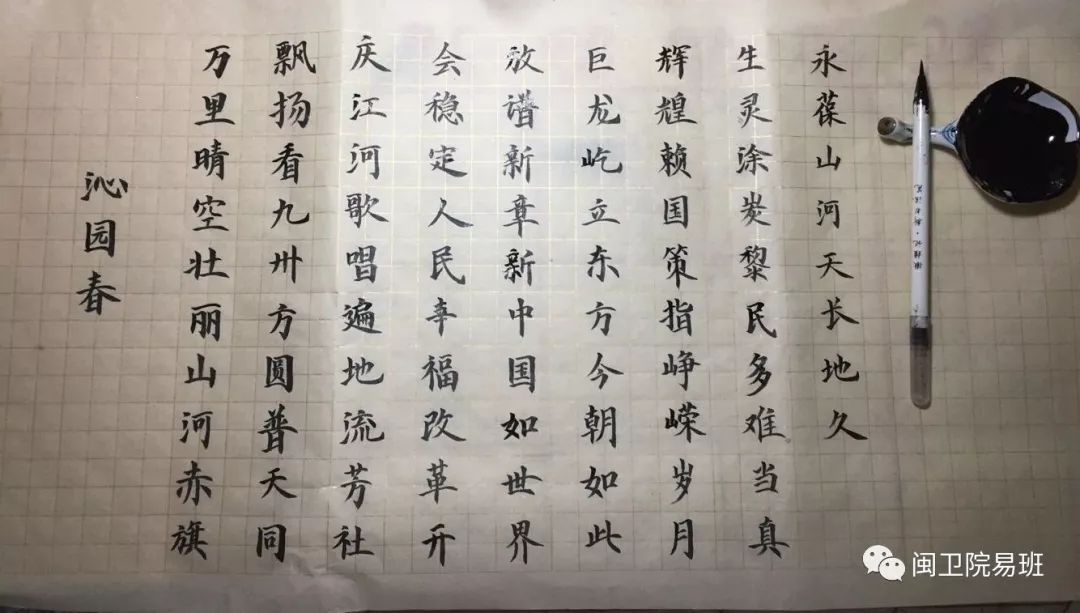 沁园春
万里晴空壮丽山河赤旗
飘扬看九州方圆普天同
庆江河歌唱遍地流芳社
会稳定人民幸福改革开
放谱新章新中国如世界
巨龙屹立东方今朝如此
辉煌赖国策指峥嵘岁月
生灵涂炭黎民多难当真
永葆山河天长地久
闽卫院易班